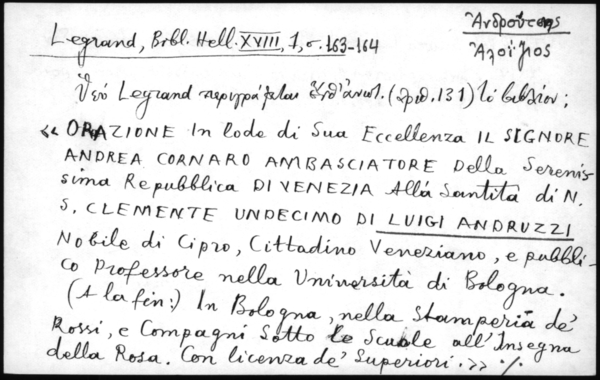 Ἀνδρούτσης
Ἀλοΐσιος
Legrand, Bibl. Hell. XVIII, 1, σ. 163-164
Ὑπό Legrand περιγράφεται (ἀριθ. 131) τό βιβλίον;
«ORAZIONE In lode di Sua Eccellenza IL SIGNORE
ANDREA CORNARO AMBASCIATORE Della Serenis-
sima Repubblica DI VENEZIA Allá Santità di N.
S. CLEMENTE UNDECIMO DI LUIGI ANDRUZZI
Nobile di Cipro, Cittadino Veneziano, e pubbli-
co Professore nella Università di Bologna.
(A la fin:) In Bologna, nella Stamperia de'
Rossi, e Compagni Sotto le Scuole all'Insegna
della Rosa. Con licenza de' Superiori.» ./.